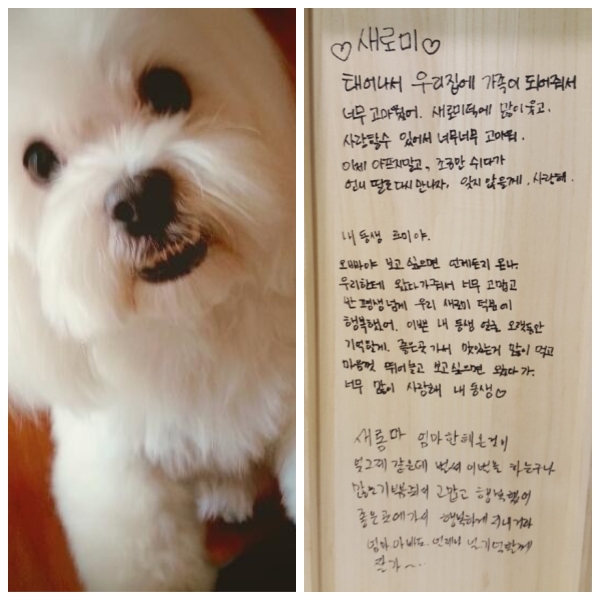 ♡새로미♡
태어나서 우리집에 가족이 되어줘서
너무 고마웠어. 새로미덕에 많이웃고.
사랑할수 있어서 너무너무 고마워.
이제 아프지말고, 조금만 쉬다가
언니 딸로 다시 만나자, 잊지 않을게. 사랑해.
내 동생 로미야.
오빠야 보고 싶으면 언제든지 온나.
우리한테 왔다가줘서 너무 고맙고
반평생 넘게 우리 새로미 덕분에
행복했어. 이쁜 내 동생 얼굴 오랫동안
기억할게. 좋은곳 가서 맛있는거 많이 먹고
마음껏 뛰어놀고 보고싶으면 왔다 가.
너무 많이 사랑해 내 동생♡
새롬아 엄마한테 온것이
엊그제 같은데 벌써 이별을 하는구나
고맙고 행복했어
좋은곳에가서 행복하게 지내거라
잘가~.